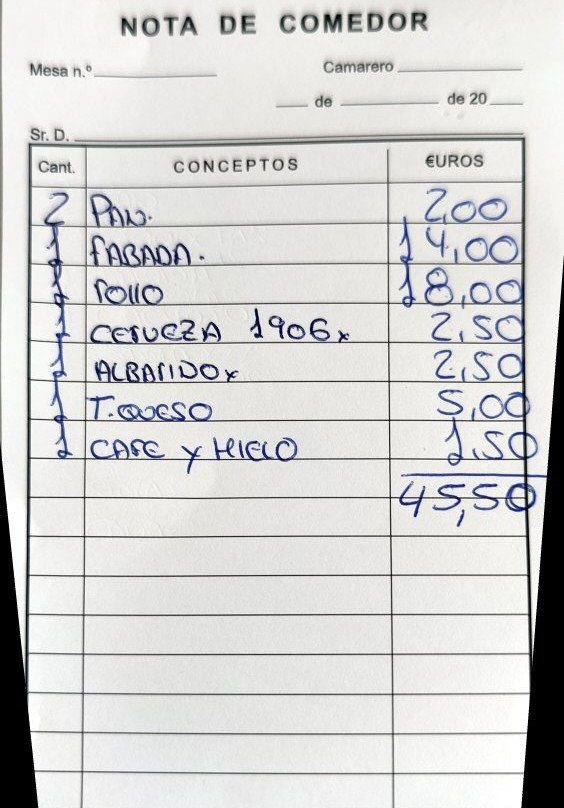 NOTA DE COMEDOR
Mesa n.º
Camarero
de de 20
Sr. D.
Cant. CONCEPTOS €UROS
2 PAN. 2,00
1 FABADA. 14,00
1 POLLO 18,00
1 CERVEZA 1906 x 2,50
1 ALBARIÑO x 2,50
1 T. QUESO 5,00
1 CAFE Y HIELO 1,50
45,50